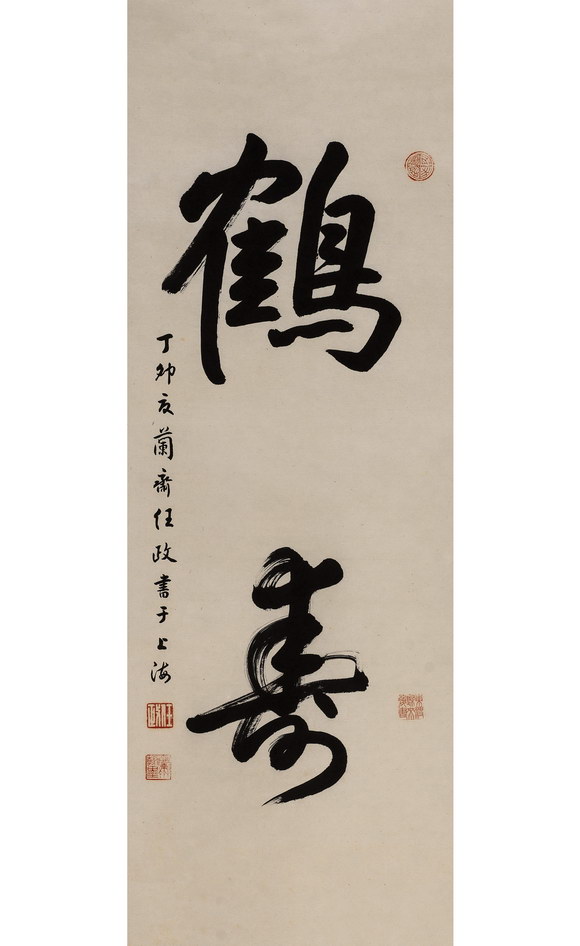 鶴壽
丁卯夏蘭齋任政書于上海
任政